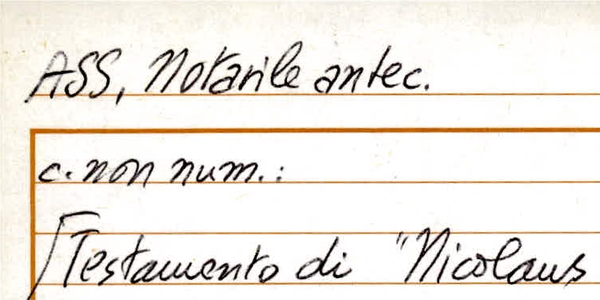 ASS, Notarile antec.
c. non num.:
Testamento di "Nicolaus